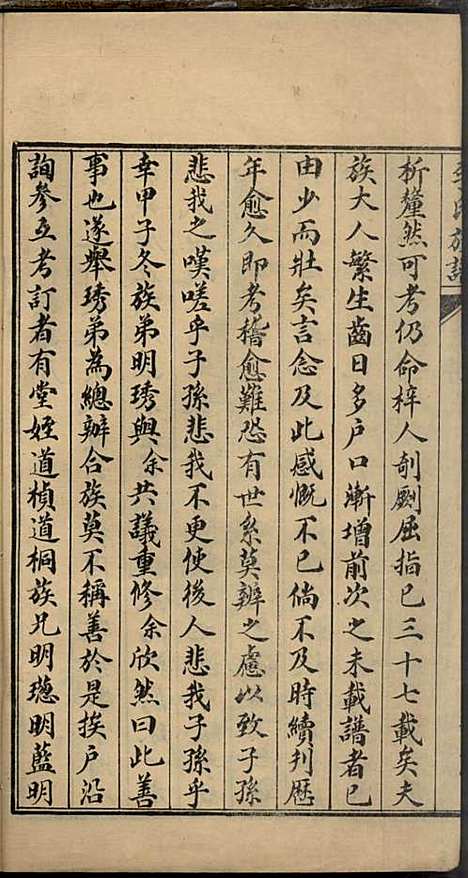 氏族譜
析釐然可考仍命梓人剞劂屈指已三十七載矣夫
族大人繁生齒日多戶口漸增前次之未載譜者已
由少而壯矣言念及此感慨不已倘不及時續刋歷
年愈久即考稽愈難恐有世系莫辨之慮以致子孫
悲我之嘆嗟乎子孫悲我不更使後人悲我子孫乎
幸甲子冬族弟明琇與余共議重修余欣然曰此善
事也遂舉琇弟為總辦合族莫不稱善於是挨戶沿
詢參互考訂者有堂姪道楨道桐族兄明璁明藍明